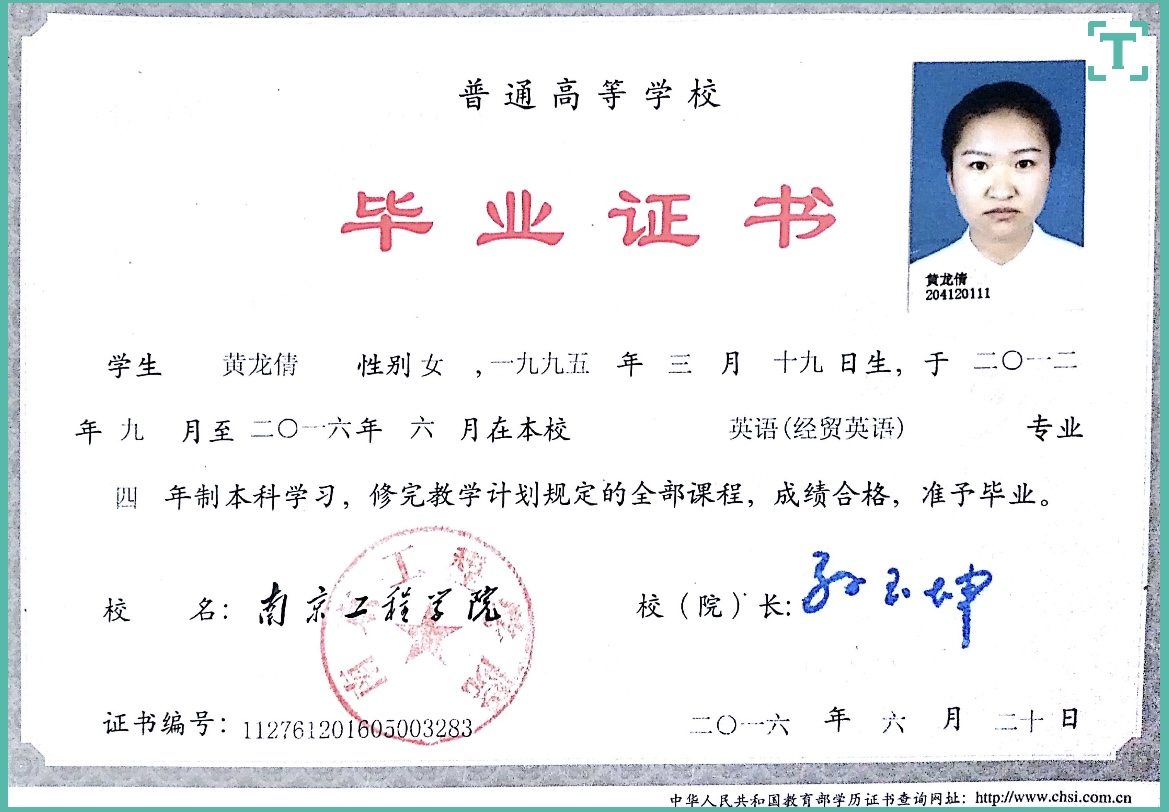 普通高等学校
毕业证书
黄龙倩
204120111
学生 黄龙倩 性别 女 ,一九九五 年 三 月 十九 日生，于 二〇一二
年 九 月至 二〇一六年 六 月在本校 英语(经贸英语) 专业
四 年制本科学习，修完教学计划规定的全部课程，成绩合格，准予毕业。
校 名：南京工程学院 校（院）长：孙玉坤
南京工程学院
证书编号：112761201605003283 二〇一六 年 六 月 二十 日
中华人民共和国教育部学历证书查询网址：http://www.chsi.com.cn
T